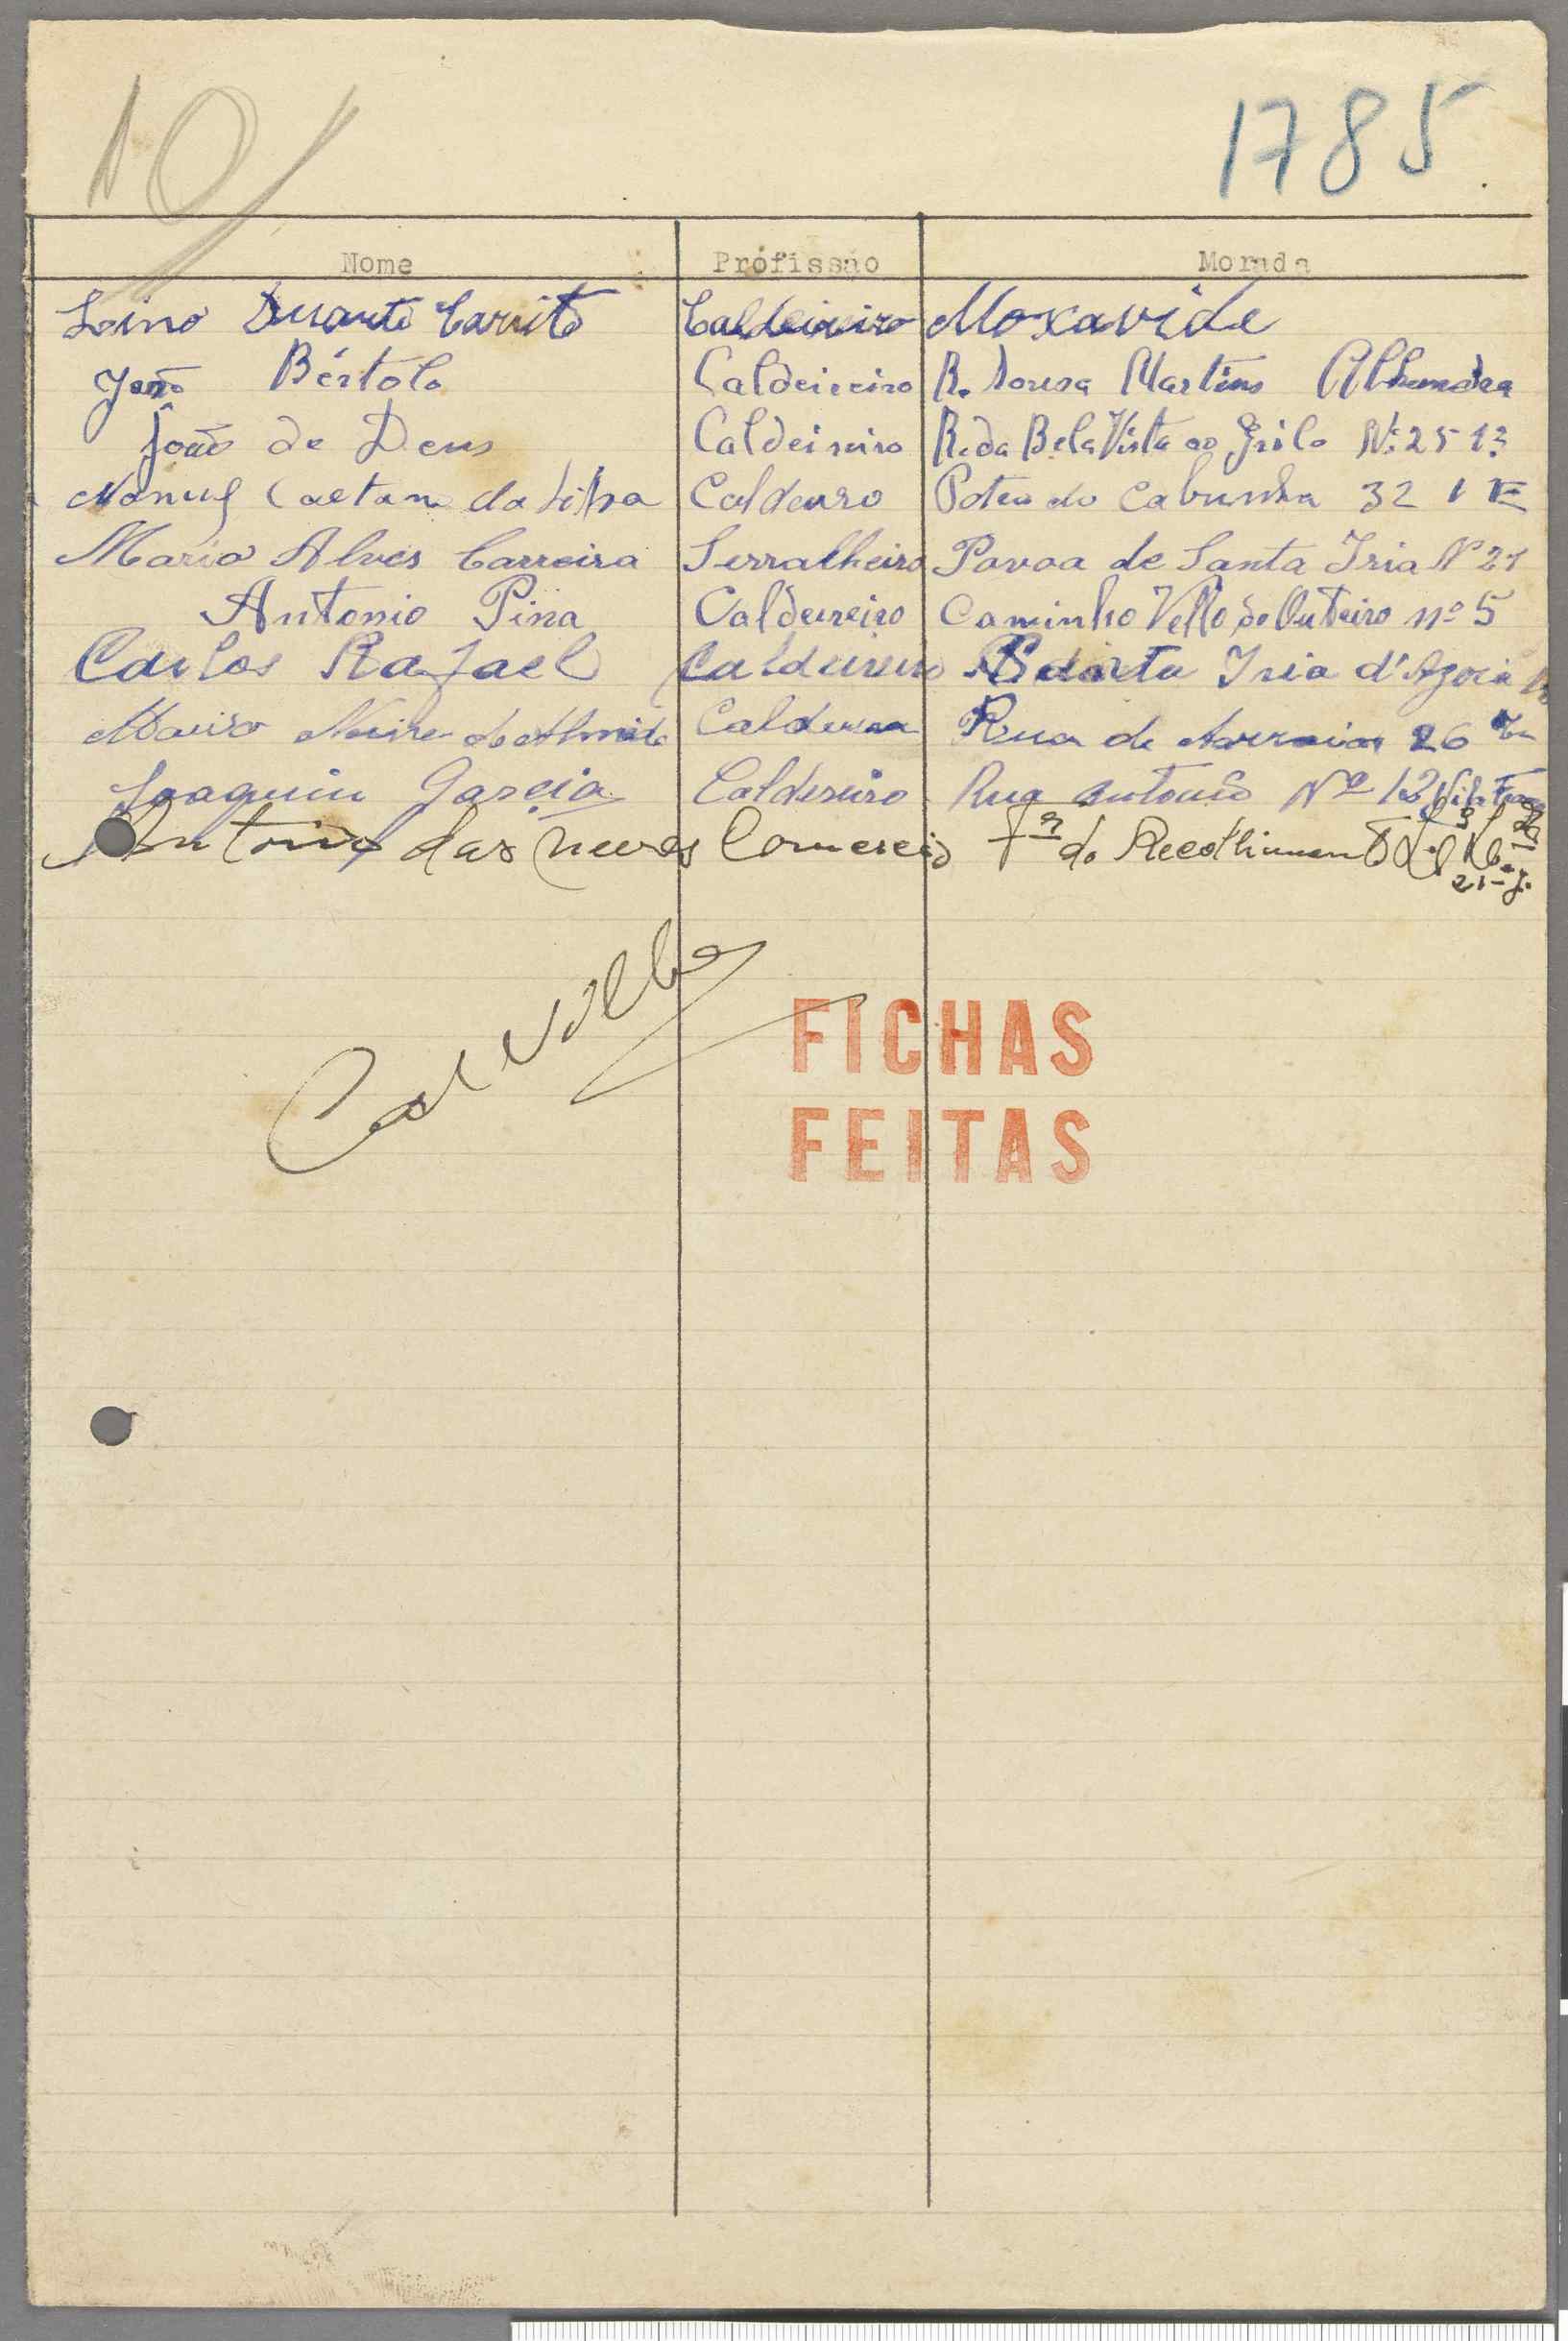 10/
1785
Nome Profissão Morada
Lino Duarte Carrito Caldeireiro Moxavide
João Bértolo Caldeireiro R. Sousa Martins Alhandra
João de Deus Caldeireiro R. da Bela Vista ao Grilo Nº 25 1º
Manuel Caetano da Silva Caldeiro Pateo do 32 1 E
Mario Alves Carreira Serralheiro Povoa de Santa Iria Nº 21
Antonio Pina Caldeireiro Caminho Velho do Outeiro nº 5
Carlos Rafael Caldeireiro Santa Iria d'Azoia
de Almeida Rua de Arroios 26
Joaquim Garcia Caldereiro Rua Nº 12
Antonio das Neves Comercio do Recolhimento
FICHAS
FEITAS